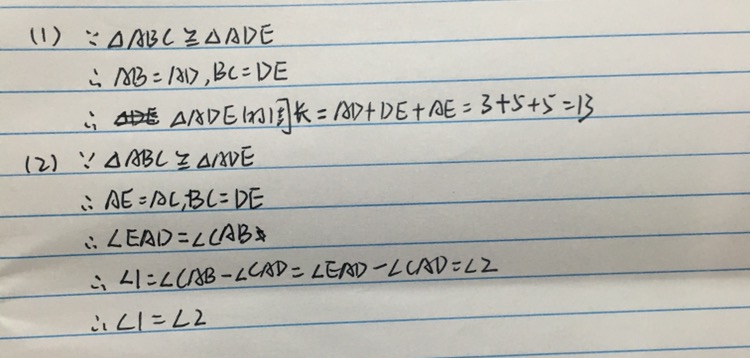 (1) ∵ △ABC≌△ADE
∴ AB=AD,BC=DE
∴ △ADE的周长=AD+DE+AE=3+5+5=13
(2) ∵ △ABC≌△ADE
∴ AE=AC,BC=DE
∴ ∠EAD=∠CAB
∴ ∠1=∠CAB-∠CAD=∠EAD-∠CAD=∠2
∴ ∠1=∠2